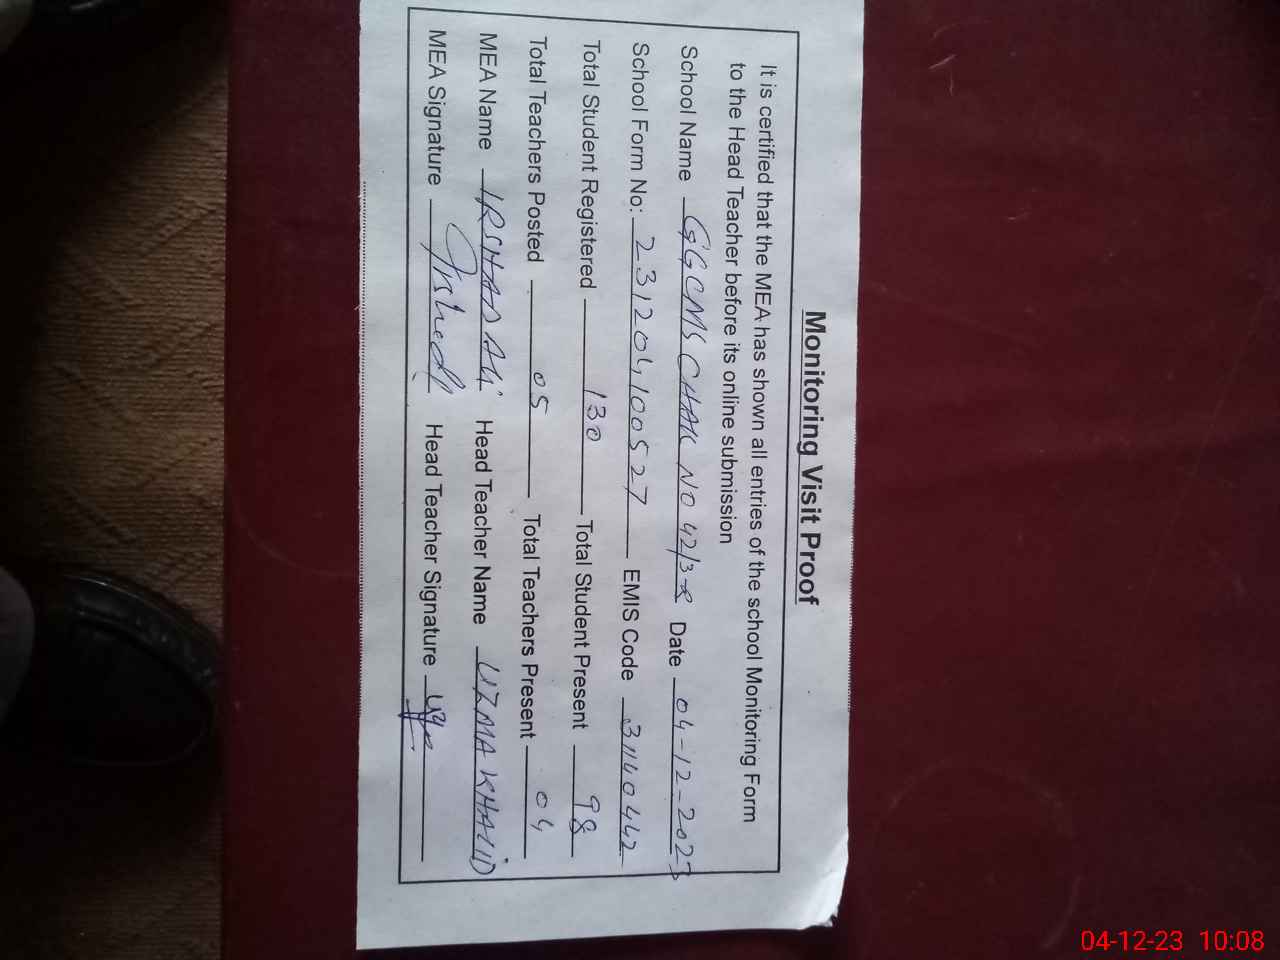 Monitoring Visit Proof
It is certified that the MEA has shown all entries of the school Monitoring Form
to the Head Teacher before its online submission
School Name GGCMS CHAK NO 42/3-R Date 04-12-2023
School Form No: 231204100527 EMIS Code 31140442
Total Student Registered 130 Total Student Present 98
Total Teachers Posted 05 Total Teachers Present 04
MEA Name IRSHAD ALI Head Teacher Name UZMA KHALID
MEA Signature Head Teacher Signature
04-12-23 10:08